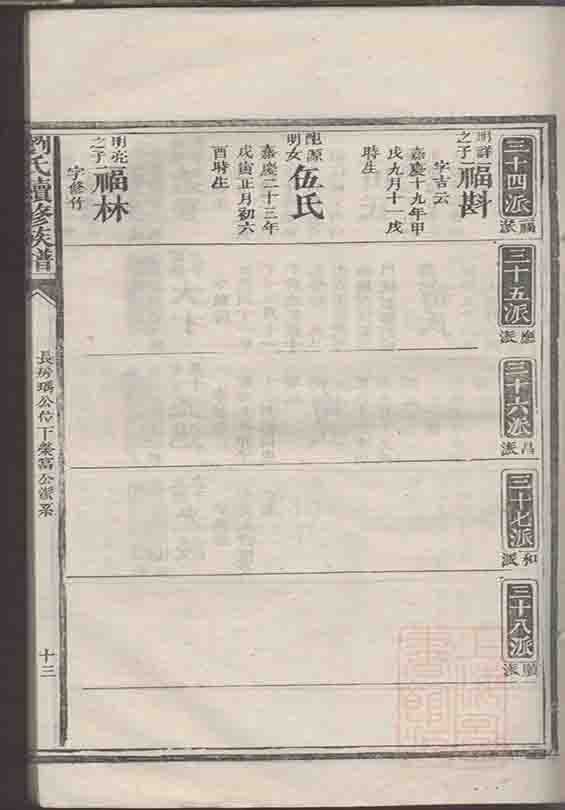 三十四派
福派
三十五派
應派
三十六派
昌派
三十七派
和派
三十八派
順派
明詳之子
福斟
字吉云
嘉慶十九年甲
戌九月十一戌
時生
明女
伍氏
嘉慶二十三年
戊寅正月初六
酉時生
明亮之子
福林
字修竹
劉氏續修族譜
長房瑀公位下榮富公派系
十三